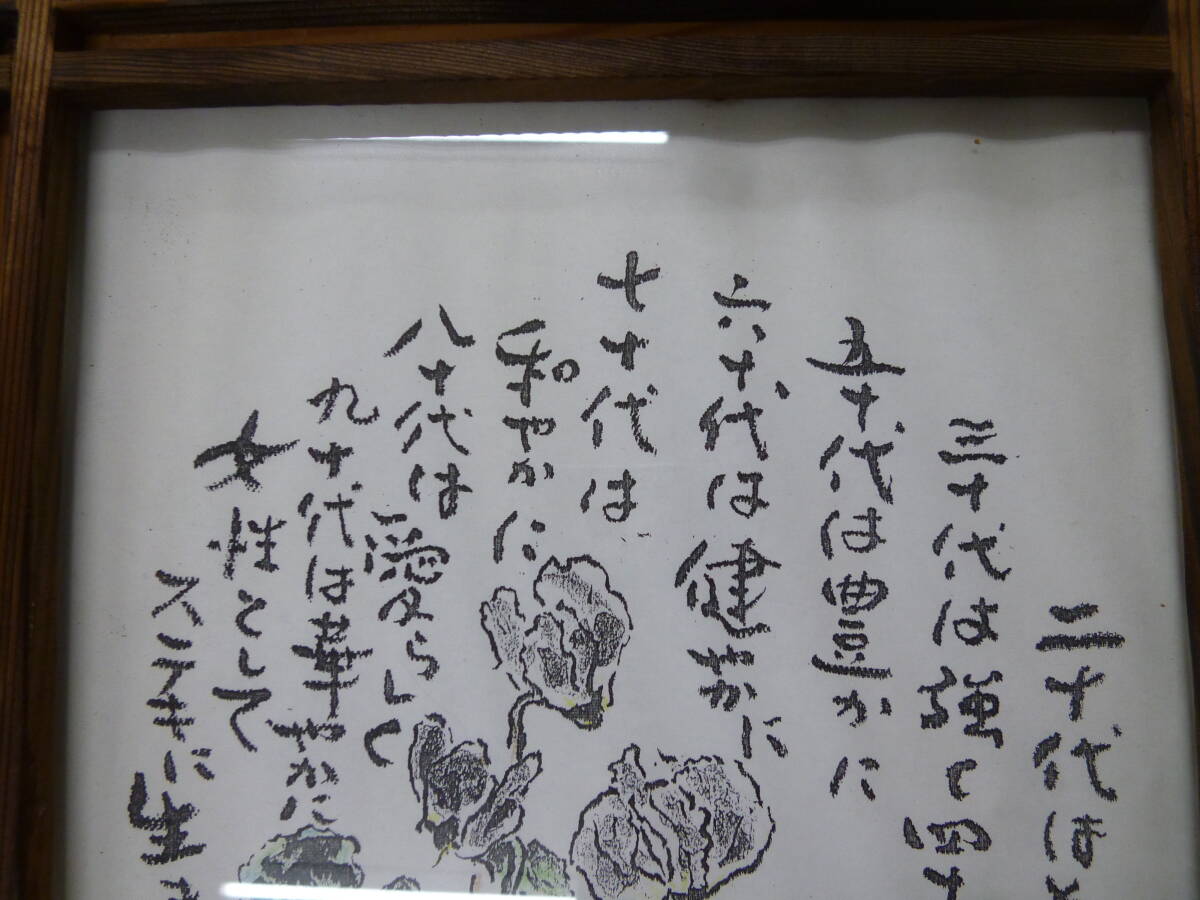 二十代は
三十代は強く四十
五十代は豊かに
六十代は健やかに
七十代は
和やかに
八十代は愛らしく
九十代は華やかに
女性として
ステキに生